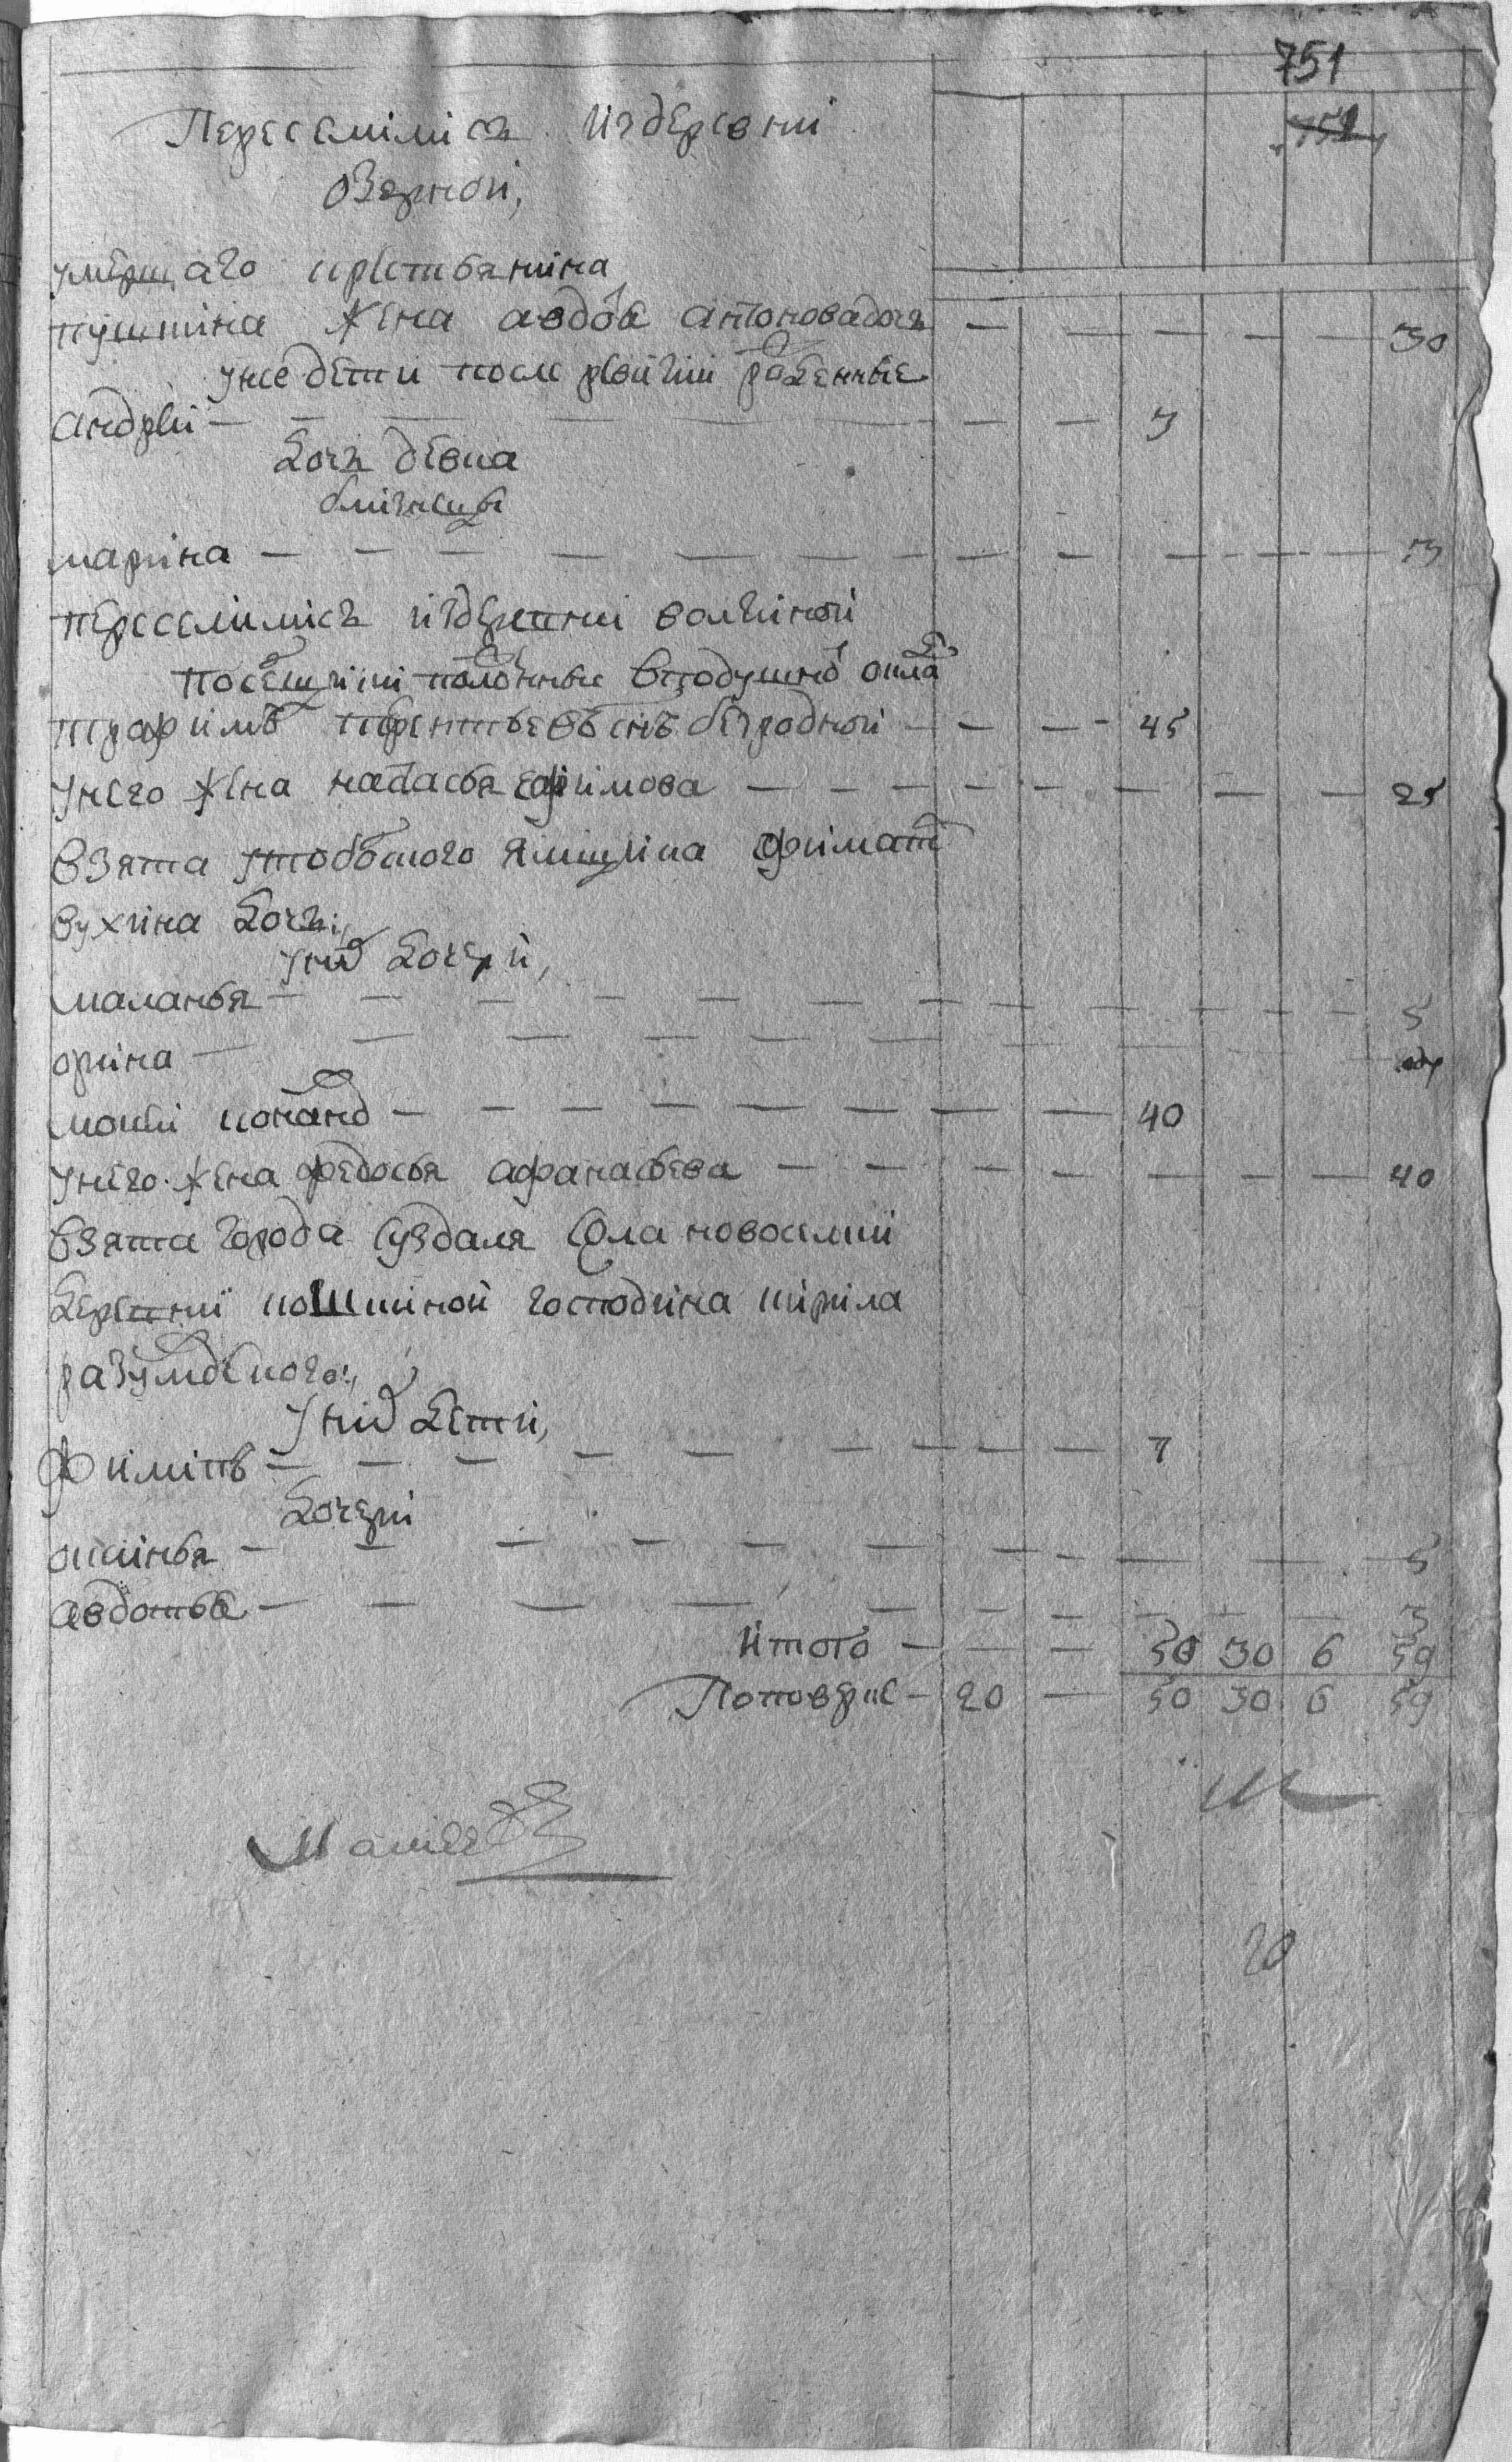 751
752
Переселились издеревни
Озерной,
умершаго крестьянина
пушкина жена авдотья антоновадочь — — — — — 30
унее дети после ревизии рожденные
андреи — — — — 3
дочь девка
близнецы
марина — — — — 3
переселились издеревни волчихои
посещики положенные вподушной оклад
трафимъ терентьевъ снъ безродной — — — 45
унего жена настасья ефимова — — — 25
взята утобольского ямщика
вухина дочь,
унихъ дочери,
маланья — — — 5
орина — — —
мокеи кононов — — — 40
унего жена федосья афанасьева — — — 40
взята города Суздаля села новоселки
деревни кошкиной господина кирила
разумовского,
унихъ дети,
Филипъ — — — 7
дочери
аксинья — — — 5
авдотья — — — 3
Итого — — — 50 30 6 59
Потоверке — 20 — 50 30 6 59
20